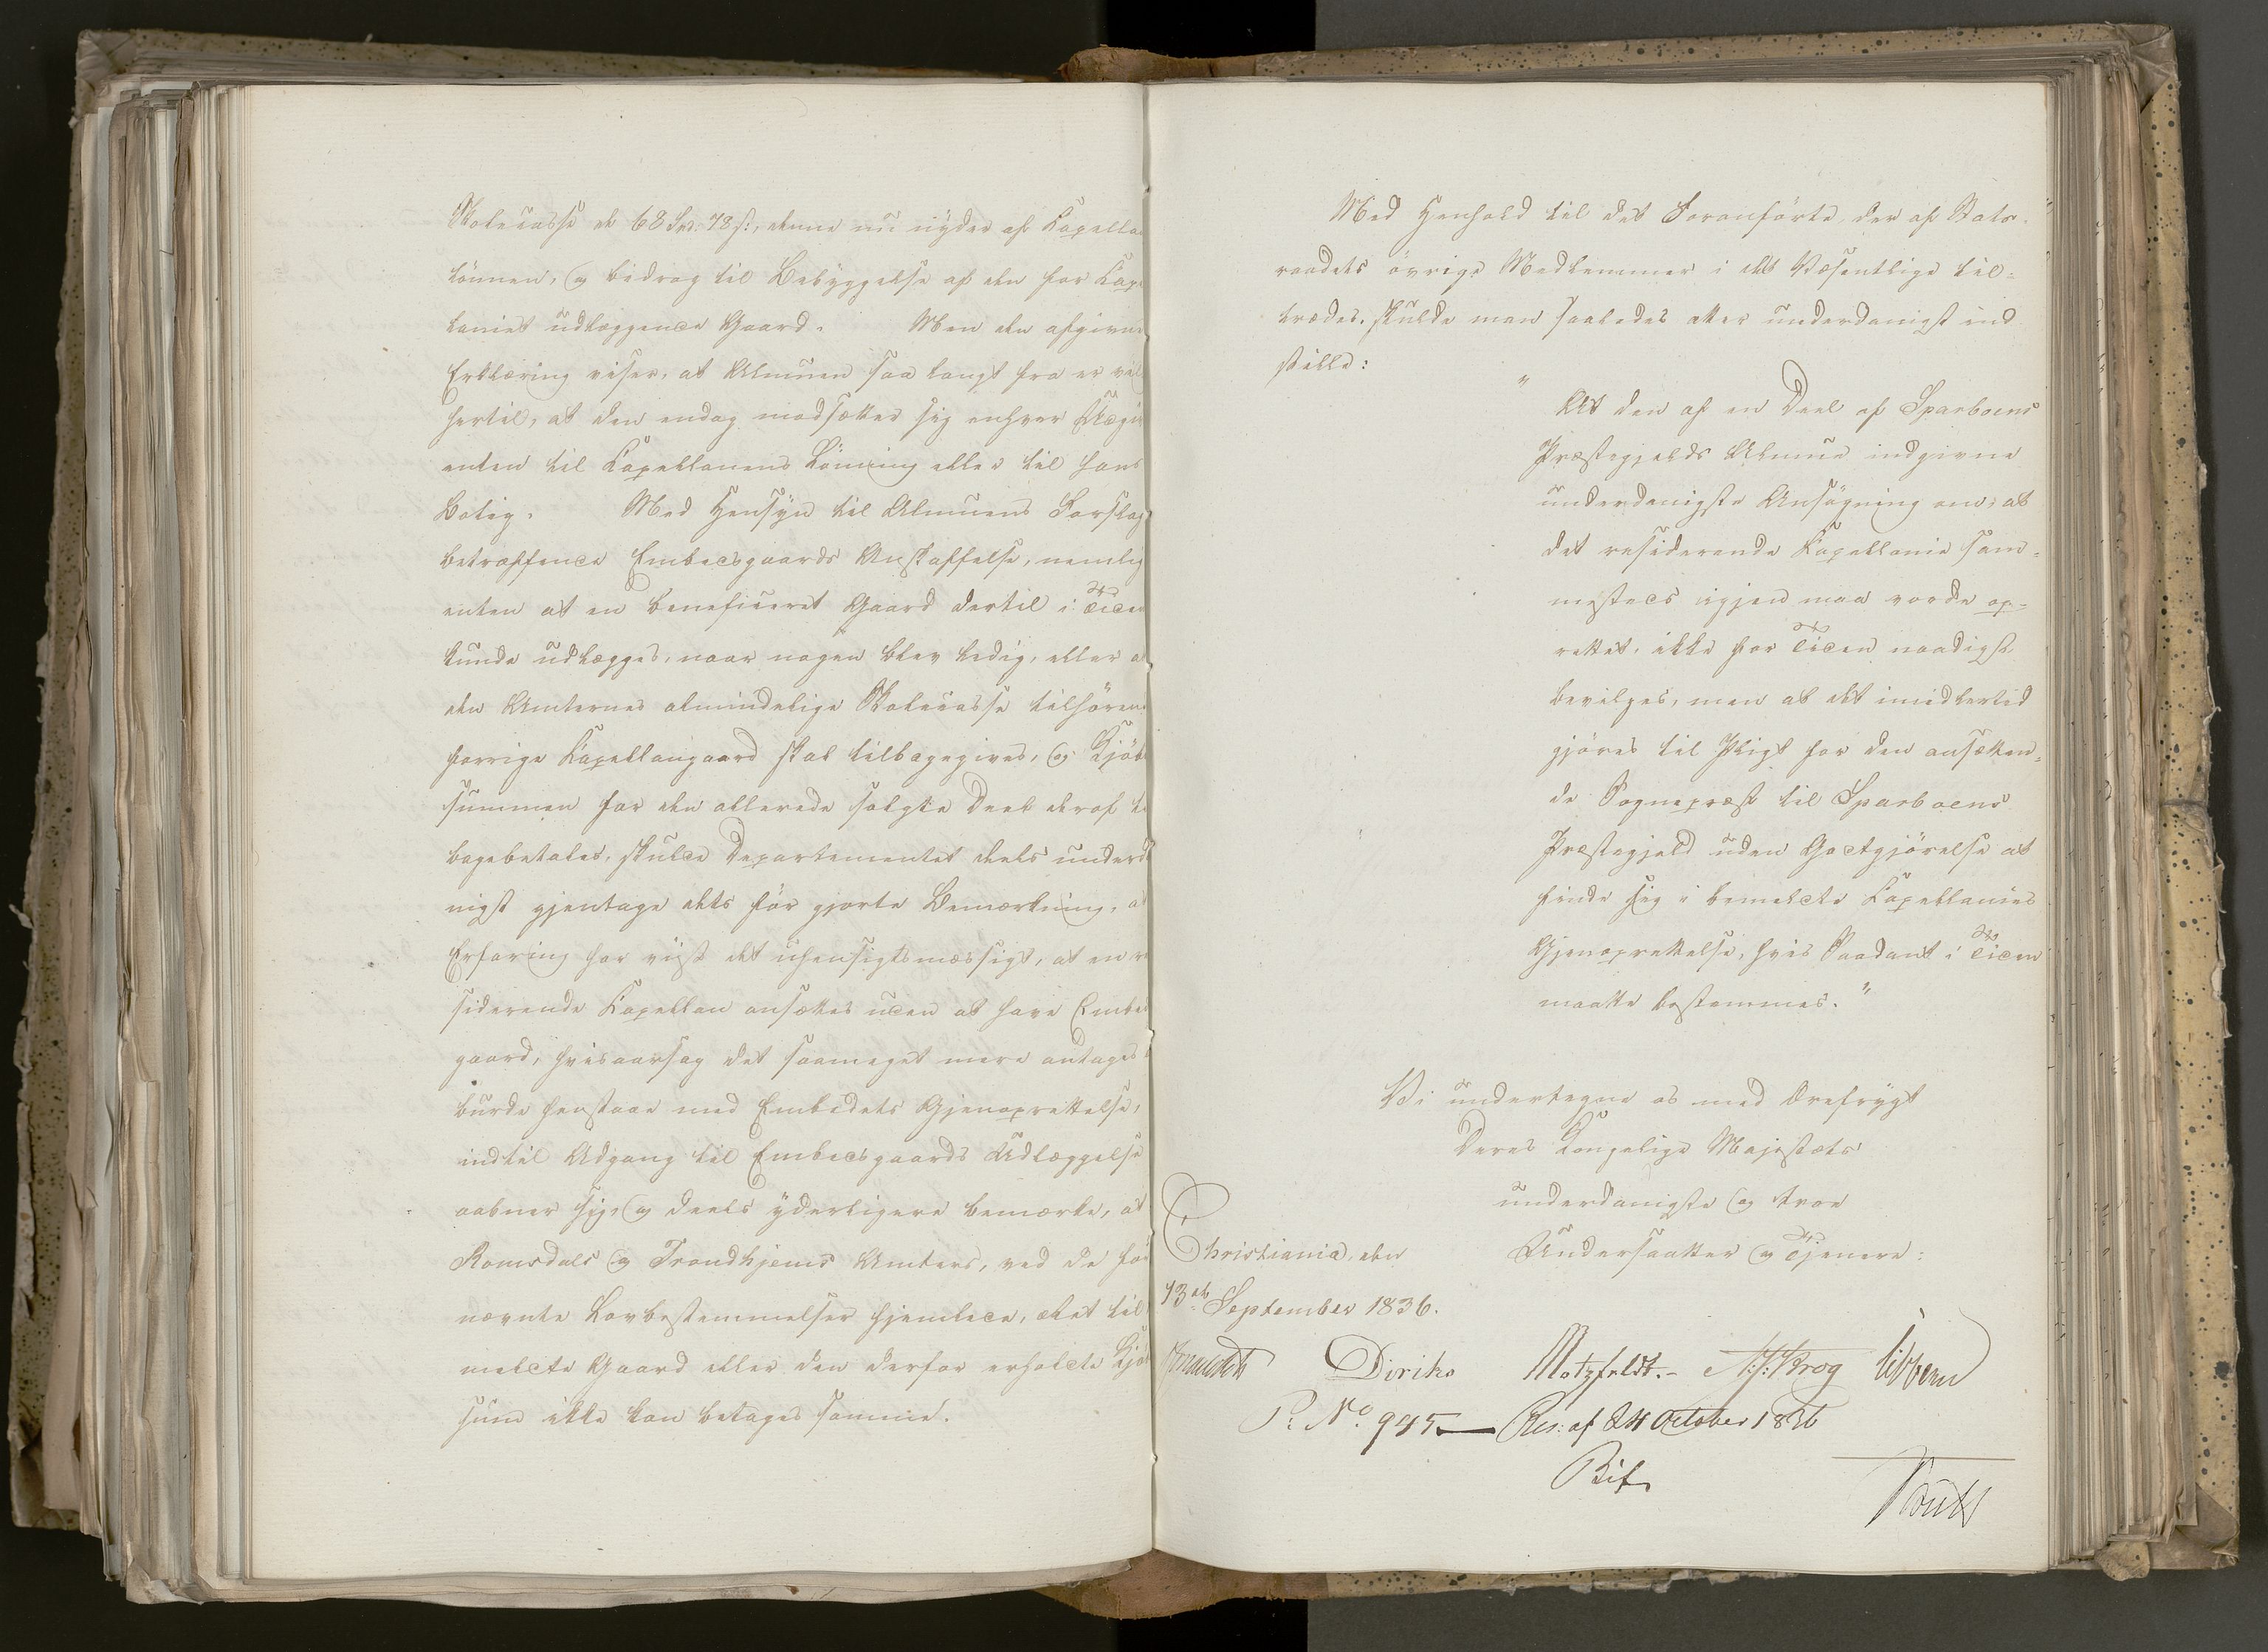 Skolecasse de 68 Spd. 78 s:, denne nu nyder af Kapella
lönnen, og bidrag til Bebyggelse af den for Cap
laniet udlæggende Gaard. Men den afgivne
Erklæring viser, at Almuen saa langt fra er vil
hertil, at den endog modsætter sig enhver
enten til Kapellanens Lönning eller til hans
Bolig. Med Hensyn til Almuens Forslag
betræffende Embedsgaards Anskaffelse, nemlig
enten at en beneficeret Gaard dertil i Tiden
kunde udlægges, naar nogen blev ledig, eller a
den Amternes almindelige Skolecasse tilhören
forrige Kapellangaard skal tilbagegives, og Kjöbe
summen for den allerede solgte Deel deraf ti
bagebetales, skulde Departementet deels underd
nigst gjentage dets för gjorte Bemærkning, at
Erfaring har viist det uhensigtsmæssigt, at en re
siderende Kapellan ansættes uden at have Embed
gaard, hvisaarsag det saameget mere antages
burde henstaae med Embedets Gjenoprettelse,
indtil Adgang til Embedsgaards Udlæggelse
aabner sig, og deels yderligere bemærke, at
Romsdals og Trondhjems Amters, ved de for
nævnte Lovbestemmelser hjemlede, Ret til
meldte Gaard eller den derfor erholdte Kjöb
sum ikke kan betages samme.
Med Henhold til det Foranförte, der af Stats-
raadets övrige Medlemmer i det Væsentlige til=
trædes, skulde man saaledes atter underdanigst ind
stille:
"At den af en Deel af Sparboens
Præstegjelds Almue indgivne
underdanigste Ansögning om, at
det residerende Kapellanie sam=
mesteds igjen maa vorde op=
rettet, ikke for Tiden naadigst
bevilges, men at det imidlertid
gjöres til Pligt for den ansætten=
de Sognepræst til Sparboens
Præstegjeld uden Godtgjörelse at
finde sig i bemeldte Kapellanies
Gjenoprettelse, hvis Saadant i Tiden
maatte bestemmes."
Vi undertegne os med Ærefrygt
Deres Kongelige Majestæts
underdanigste og troe
Christiania, den Undersaatter og Tjenere:
13de September 1836.
Diriks Motzfeldt.- N:J: Krog Sibbern
P: No. 945 — Res: af 24 October 1836